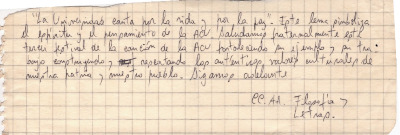 "La Universidad canta por la vida y por la paz". Este lema simboliza
el espíritu y el pensamiento de la ACU. Saludamos fraternalmente este
tercer festival de la canción de la ACU fortaleciendo su ejemplo y su tra-
bajo construyendo y respetando los auténticos valores culturales de
nuestra patria y nuestro pueblo. Sigamos adelante
CC.AA. Filosofía y
Letras.